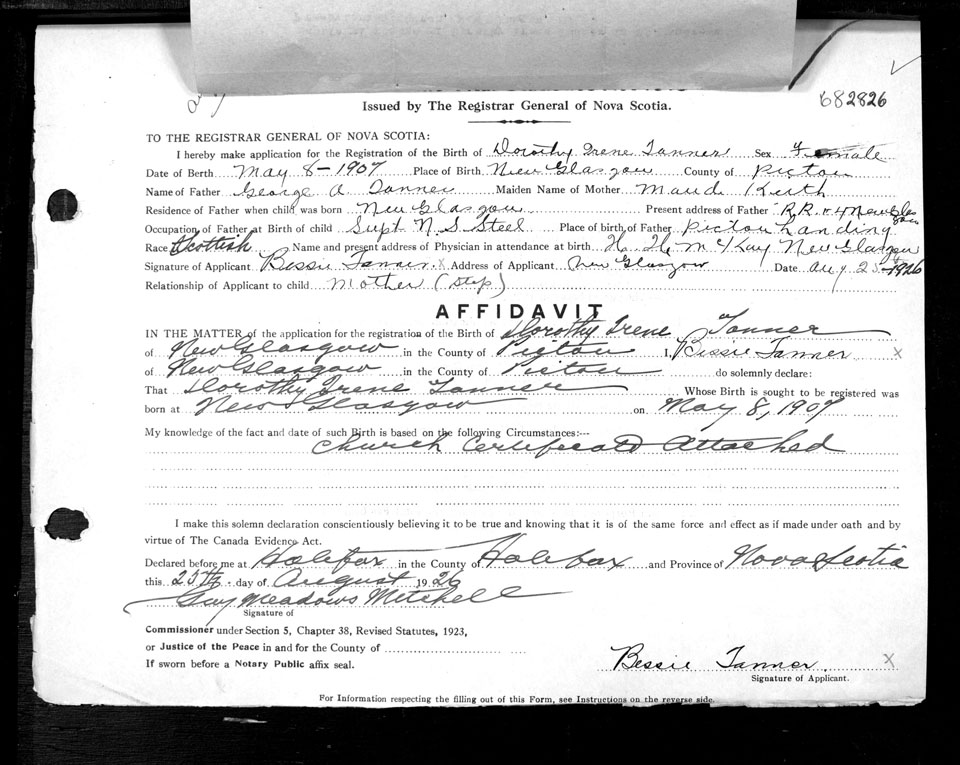 682826
Issued by The Registrar General of Nova Scotia.
TO THE REGISTRAR GENERAL OF NOVA SCOTIA:
I hereby make application for the Registration of the Birth of Dorothy Irene Tanner Sex Female
Date of Berth May 8-1907 Place of Birth New Glasgow County of Pictou
Name of Father George A Tanner Maiden Name of Mother Maud Keith
Residence of Father when child was born New Glasgow Present address of Father R.R. #4 New Glasgow
Occupation of Father at Birth of child Supt N. S Steel Place of birth of Father Pictou Landing
Race Scottish Name and present address of Physician in attendance at birth H. H. McKay New Glasgow
Signature of Applicant Bessie Tanner. X Address of Applicant New Glasgow Date Aug 25-1926
Relationship of Applicant to child Mother (Step)
AFFIDAVIT
IN THE MATTER of the application for the registration of the Birth of Dorothy Irene Tanner
of New Glasgow in the County of Pictou I, Bessie Tanner X
of New Glasgow in the County of Pictou do solemnly declare:
That Dorothy Irene Tanner Whose Birth is sought to be registered was
born at New Glasgow on May 8, 1907
My knowledge of the fact and date of such Birth is based on the following Circumstances:--
Church Certificate Attached
I make this solemn declaration conscientiously believing it to be true and knowing that it is of the same force and effect as if made under oath and by
virtue of The Canada Evidence Act.
Declared before me at Halifax in the County of Halifax and Province of Nova Scotia
this 25th day of August 1926
Guy Meadows Mitchell
Signature of
Commissioner under Section 5, Chapter 38, Revised Statutes, 1923,
or Justice of the Peace in and for the County of
If sworn before a Notary Public affix seal.
Bessie Tanner. X
Signature of Applicant.
For Information respecting the filling out of this Form, see Instructions on the reverse side.